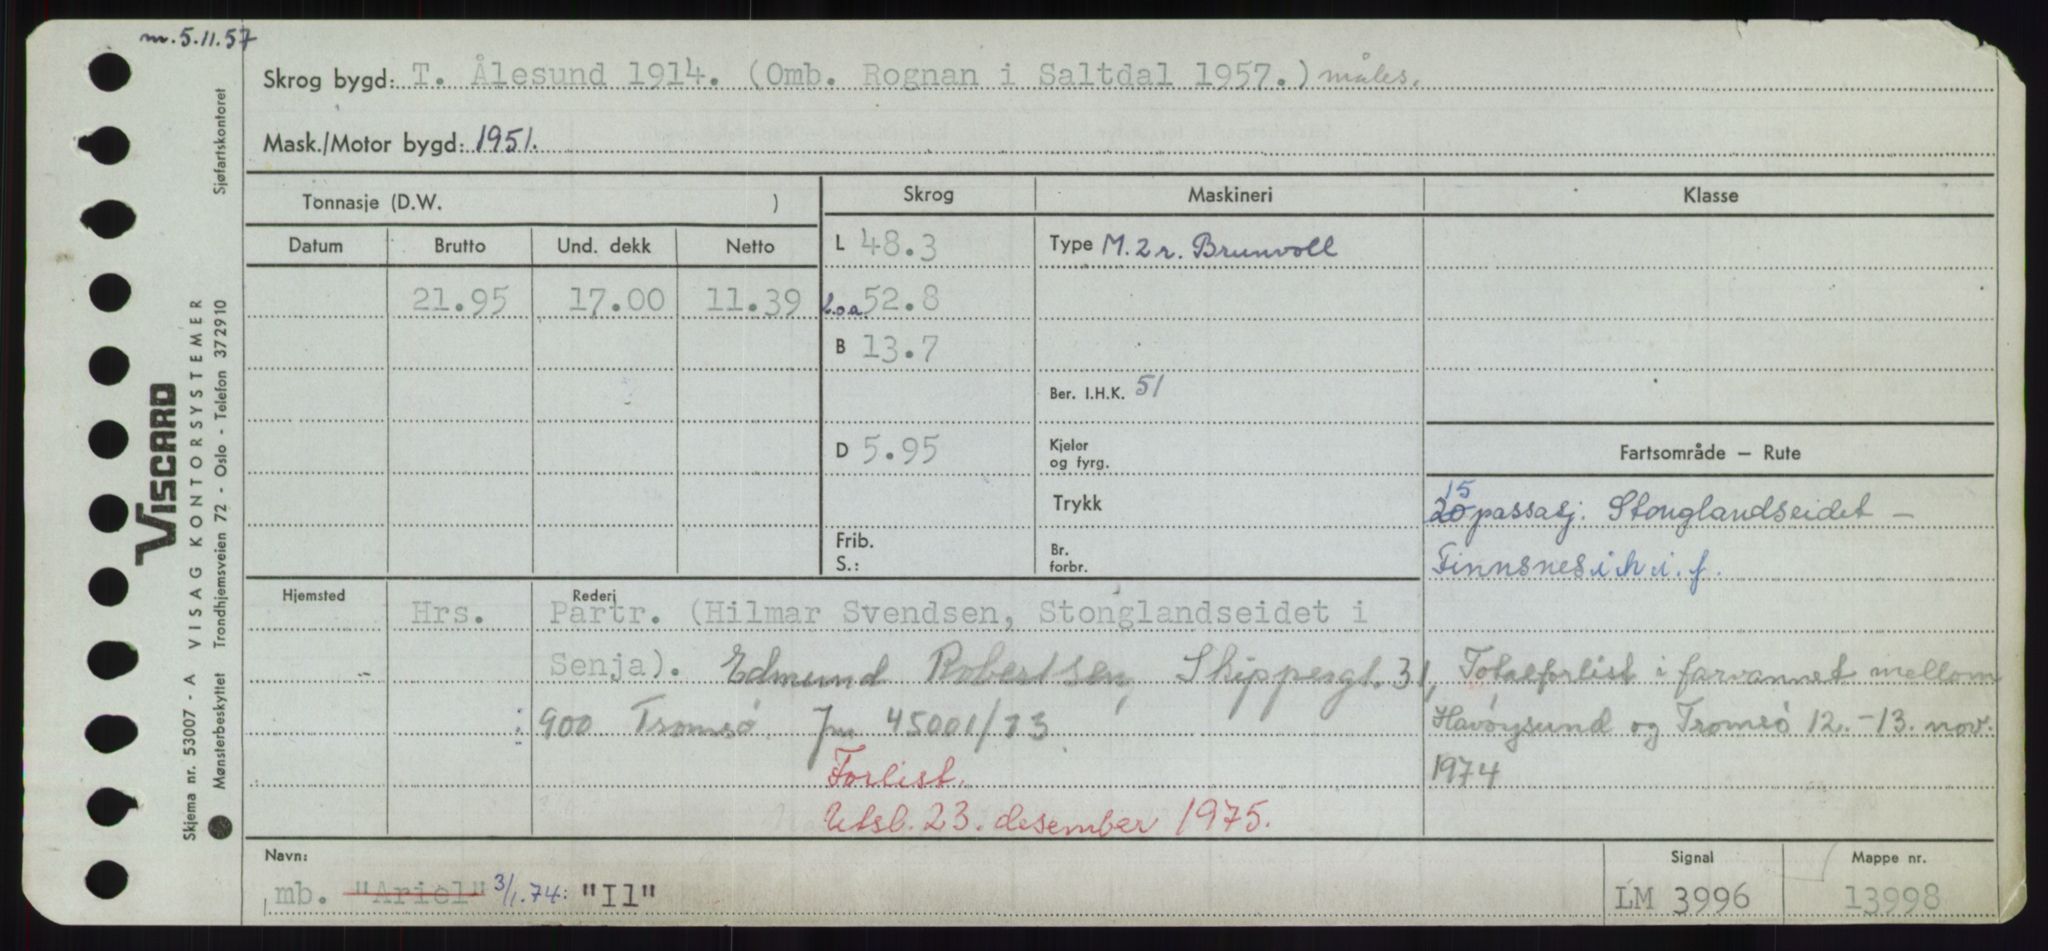 m. 5.11.57
Skrog bygd: T. Ålesund 1914. (Omb. Rognan i Saltdal 1957.) måles.
Mask./Motor bygd: 1951.
Tonnasje (D.W. )
Skrog Maskineri Klasse
Datum Brutto Und. dekk Netto
L 48.3
Type M. 2 r. Brunvoll
21.95 17.00 11.39
L.o.a. 52.8
B 13.7
Ber. I.H.K. 51
D 5.95
Kjeler
og fyrg.
Trykk
Frib.
S.:
Br.
forbr.
Fartsområde — Rute
15
20 passasj. Stonglandseidet —
Finnsnes i h. i. f.
Totalforlist i farvannet mellom
Havöysund og Tromsö 12.-13. nov.
1974
Hjemsted Rederi
Hrs. Partr. (Hilmar Svendsen, Stonglandseidet i
Senja). Edmund Robertsen, Skippergt. 31,
900 Tromsö. Jnr 45001/73
Forlist.
Utsl. 23. desember 1975.
Navn:
mb. "Ariel" 3/1.74: "Il"
Signal
LM 3996
Mappe nr.
13998
VISCARD
VISAG KONTORSYSTEMER Sjøfartskontoret
Skjema nr. 53007 - A
Mønsterbeskyttet Trondhjemsveien 72 - Oslo - Telefon 372910